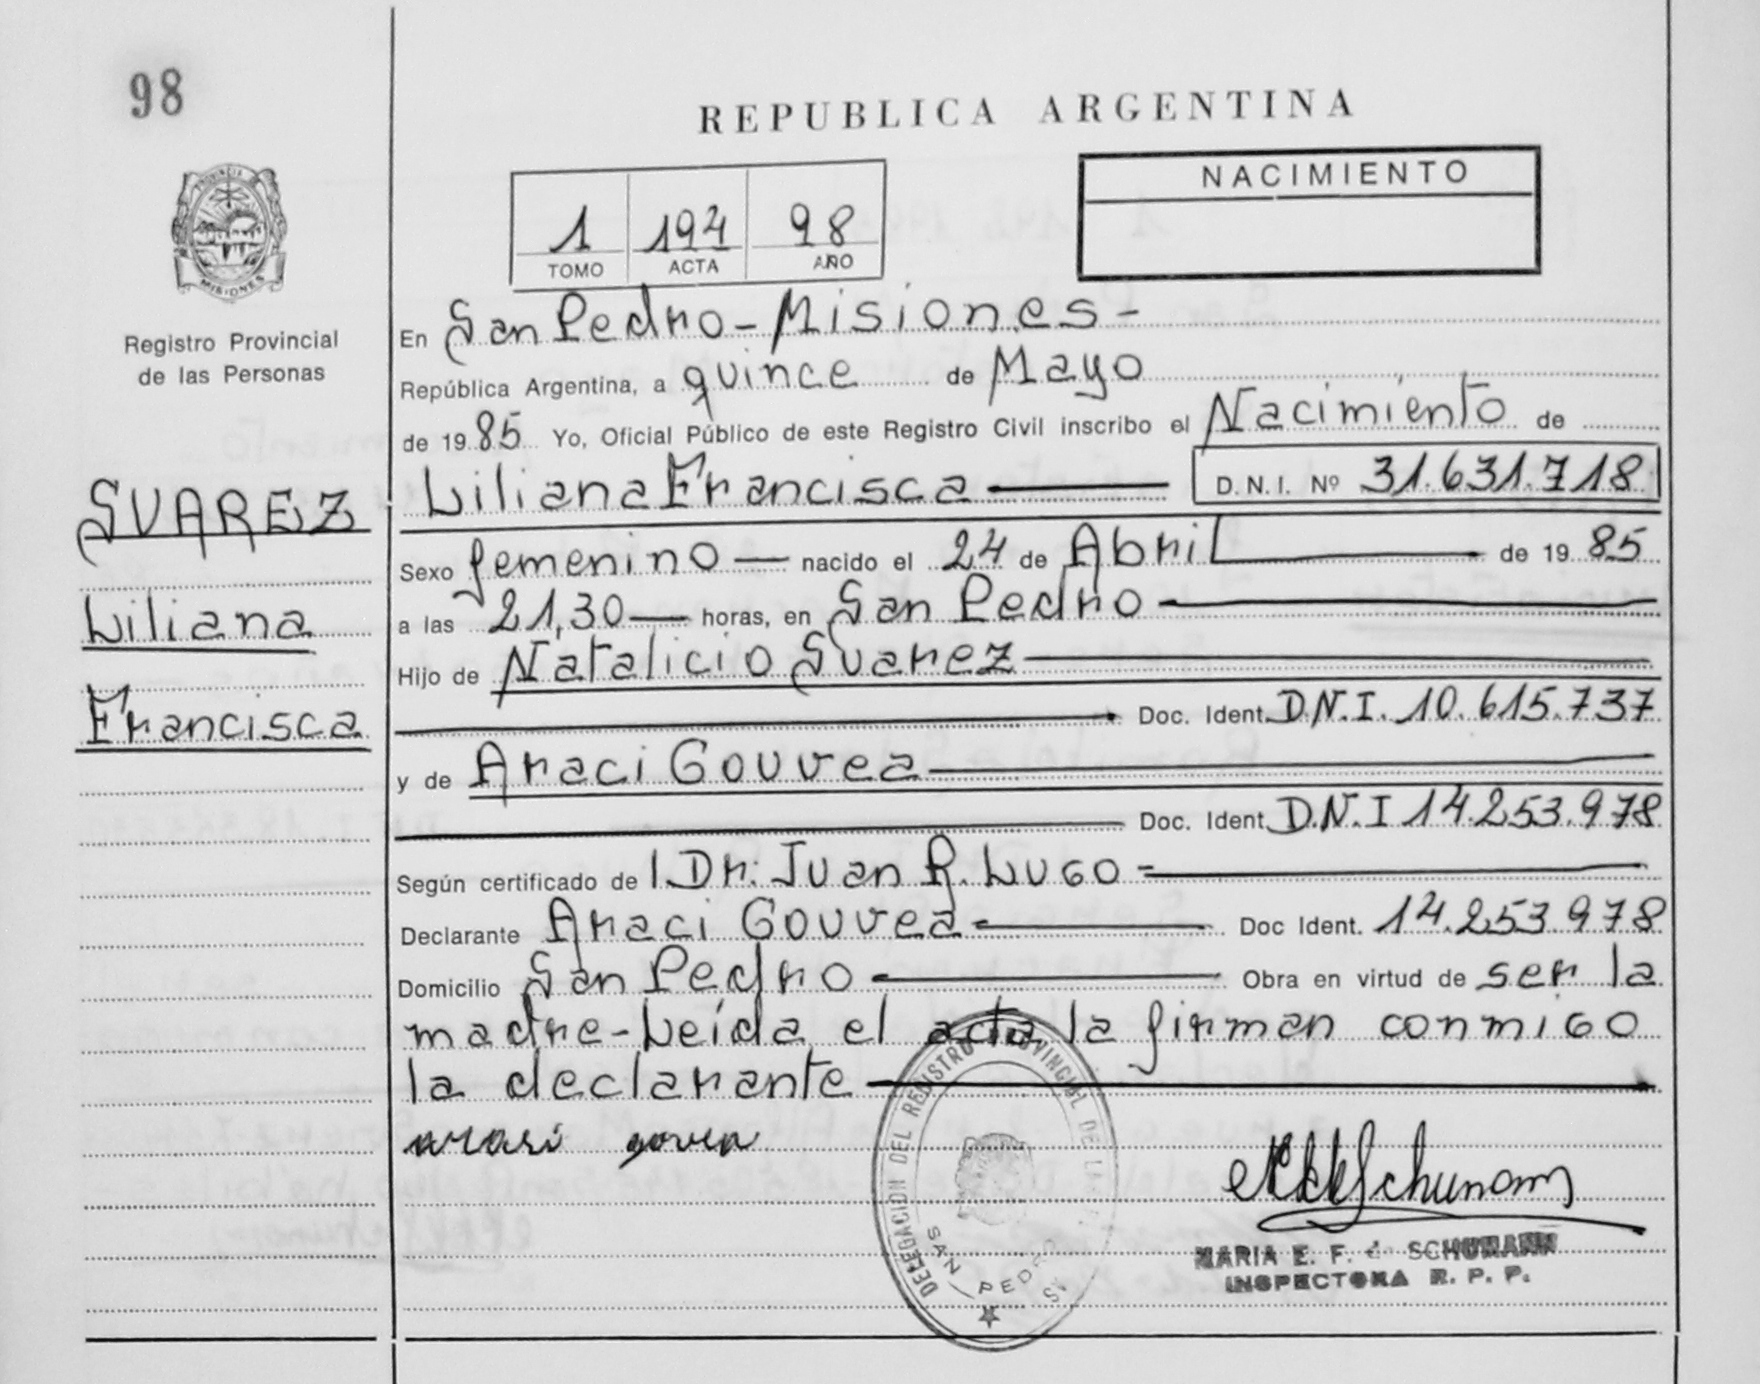 98
REPUBLICA ARGENTINA
NACIMIENTO
1 194 98
TOMO ACTA AÑO
PROVINCIA DE
MISIONES
Registro Provincial
de las Personas
En San Pedro - Misiones -
República Argentina, a quince de Mayo
de 1985 Yo, Oficial Público de este Registro Civil inscribo el Nacimiento de
Liliana Francisca D.N.I. Nº 31.631.718
SUAREZ
Liliana
Francisca
Sexo femenino nacido el 24 de Abril de 1985
a las 21,30 horas, en San Pedro
Hijo de Natalicio Suarez
Doc. Ident. D.N.I. 10.615.737
y de Araci Gouvea
Doc. Ident. D.N.I 14.253.978
Según certificado de l Dr. Juan R. Lugo
Declarante Araci Gouvea Doc Ident. 14.253.978
Domicilio San Pedro Obra en virtud de ser la
madre - Leída el acta la firman conmigo
la declarante
DELEGACION DEL REGISTRO PROVINCIAL DE
SAN PEDRO
MARIA E. F. SCHUMANN
INSPECTORA R. P. P.